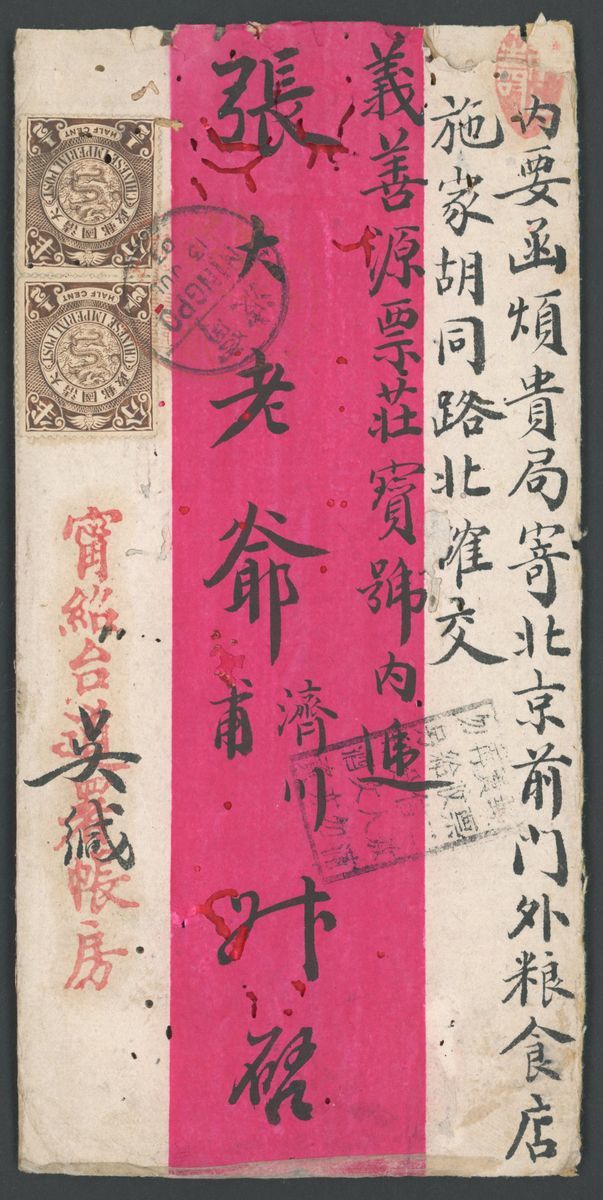 內要函煩貴局寄北京前門外粮食店
施家胡同路北確交
義善源票莊寶號內遞
張大老爺
濟川
甫
升啓
吳緘
甯紹台道署帳房
HALF CENT
CHINESE IMPERIAL POST
大清國郵政
半分
HALF CENT
CHINESE IMPERIAL POST
大清國郵政
半分
NINGPO
13